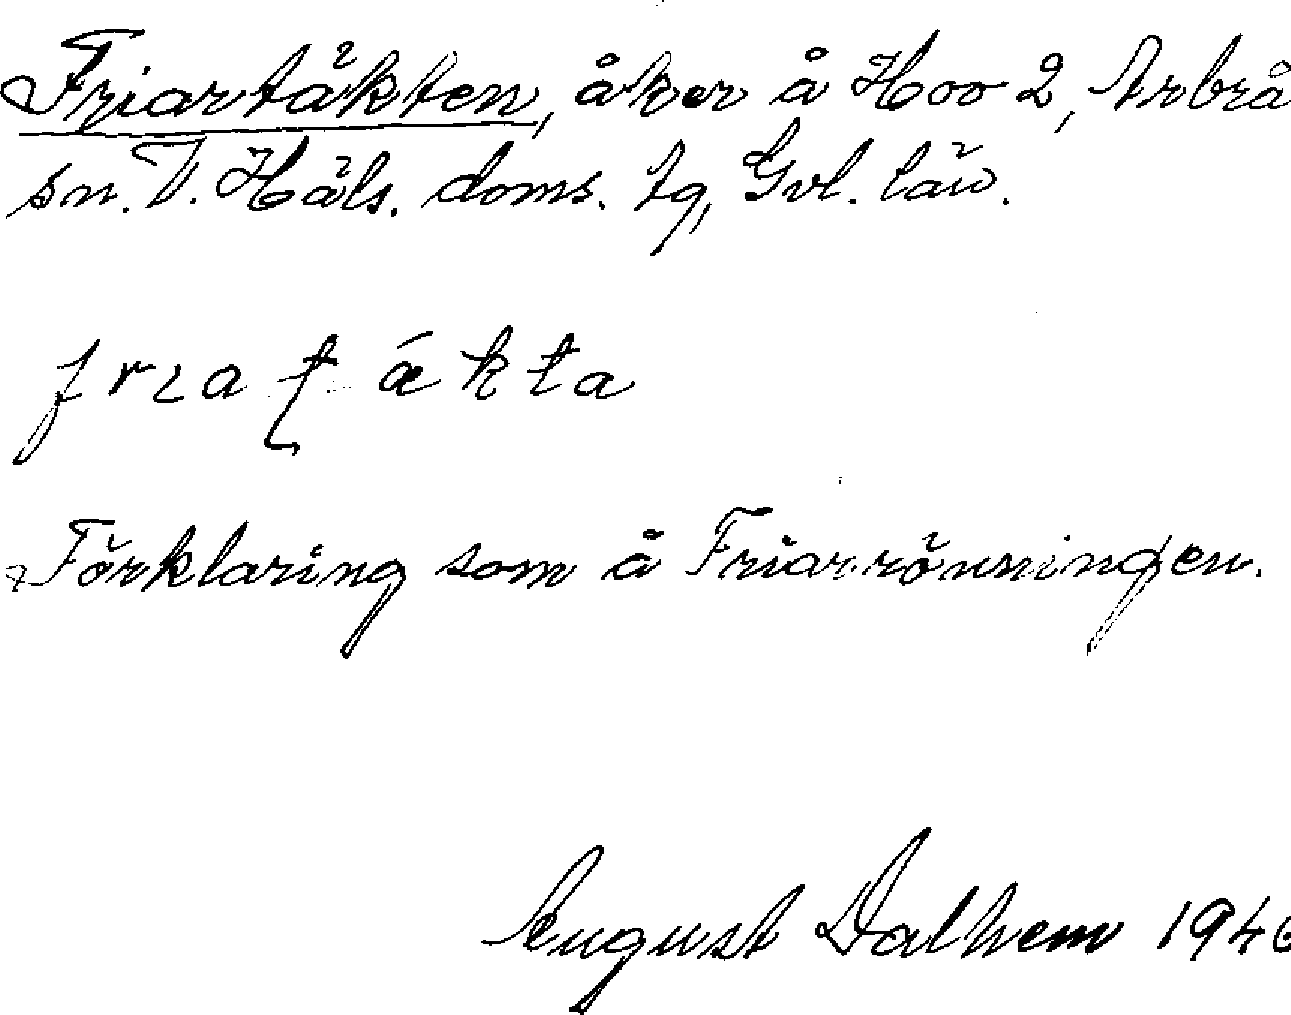 Friartäkten, åker å Hoo 2, Arbrå
sn. V. Häls. doms. tg, Gvl. län.
frɪaʈ ǽkta
Förklaring som å Friarrönningen.
August Dalhem 1946